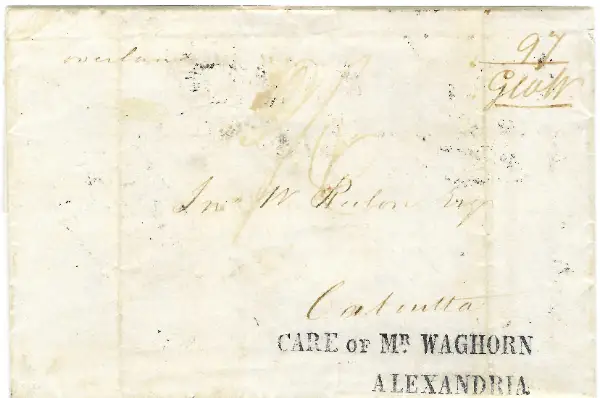 overland
97
Jno W Esq
Calcutta
CARE OF MR WAGHORN
ALEXANDRIA